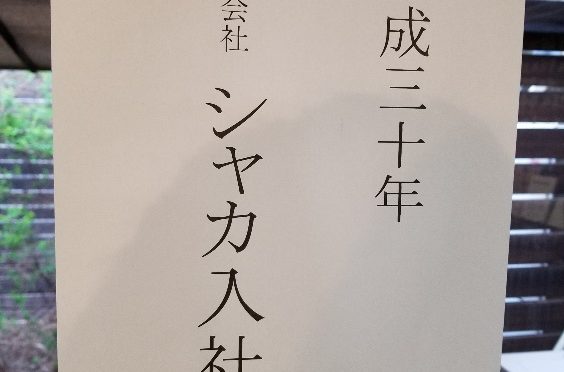 成三十年
会社 シャカ入社